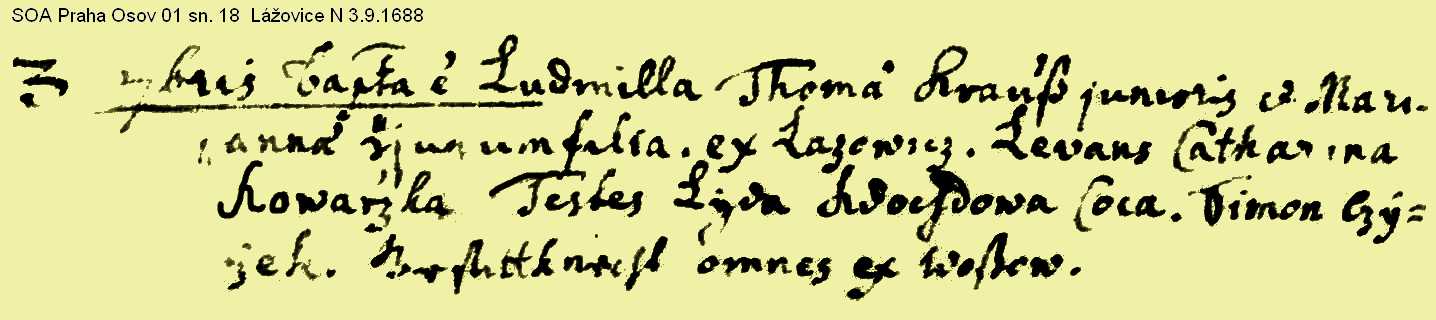 SOA Praha Osov 01 sn. 18 Lážovice N 3.9.1688
3 7bris bapta ē Ludmilla Thomā Krauß junioris et Mari-
anna conjugum filia. ex Lazowicz. Levans Catharina
Kowarzka Testes Lyda Coca. Simon Czy=
zek. omnes ex Wossow.